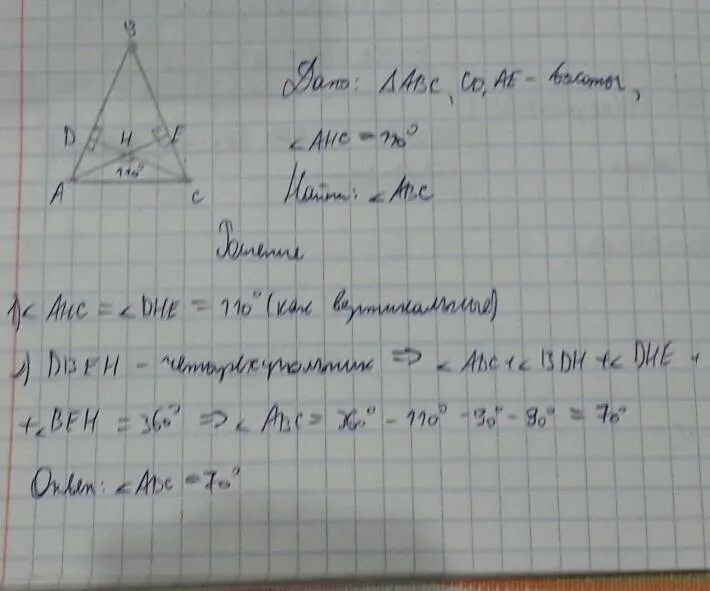 B
Дано: ΔABC, CD, AE - высоты,
D H E
∠AHC = 110°
110°
A C
Найти: ∠ABC
Решение
1) ∠AHC = ∠DHE = 110° (как вертикальные)
2) DBEH - четырехугольник ⇒ ∠ABC + ∠BDH + ∠DHE +
+ ∠BEH = 360° ⇒ ∠ABC = 360° - 110° - 90° - 90° = 70°
Ответ: ∠ABC = 70°